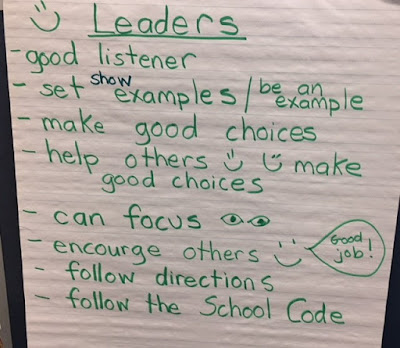 Leaders
- good listener
- set show examples / be an example
- make good choices
- help others make
good choices
- can focus
- encourge others Good job!
- follow directions
- follow the School Code